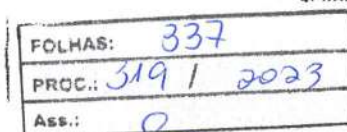 FOLHAS: 337
PROC.: 319 / 2023
Ass.: